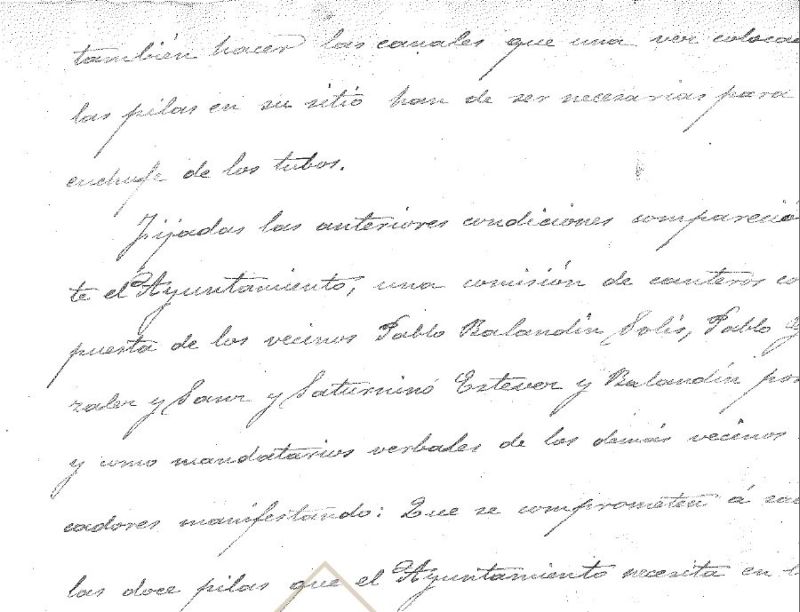 también hacer las canales que una vez coloca
las pilas en su sitio han de ser necesarias para
enchufe de los tubos.
Fijadas las anteriores condiciones compareció
te el Ayuntamiento, una comisión de canteros co
puesta de los vecinos Pablo Balandín Solís, Pablo
zalez y Sanz y Saturninó Estevez y Balandín por
y como mandatarios verbales de los demás vecinos
cadores manifestando: Que se comprometen á sac
las doce pilas que el Ayuntamiento necesita en l